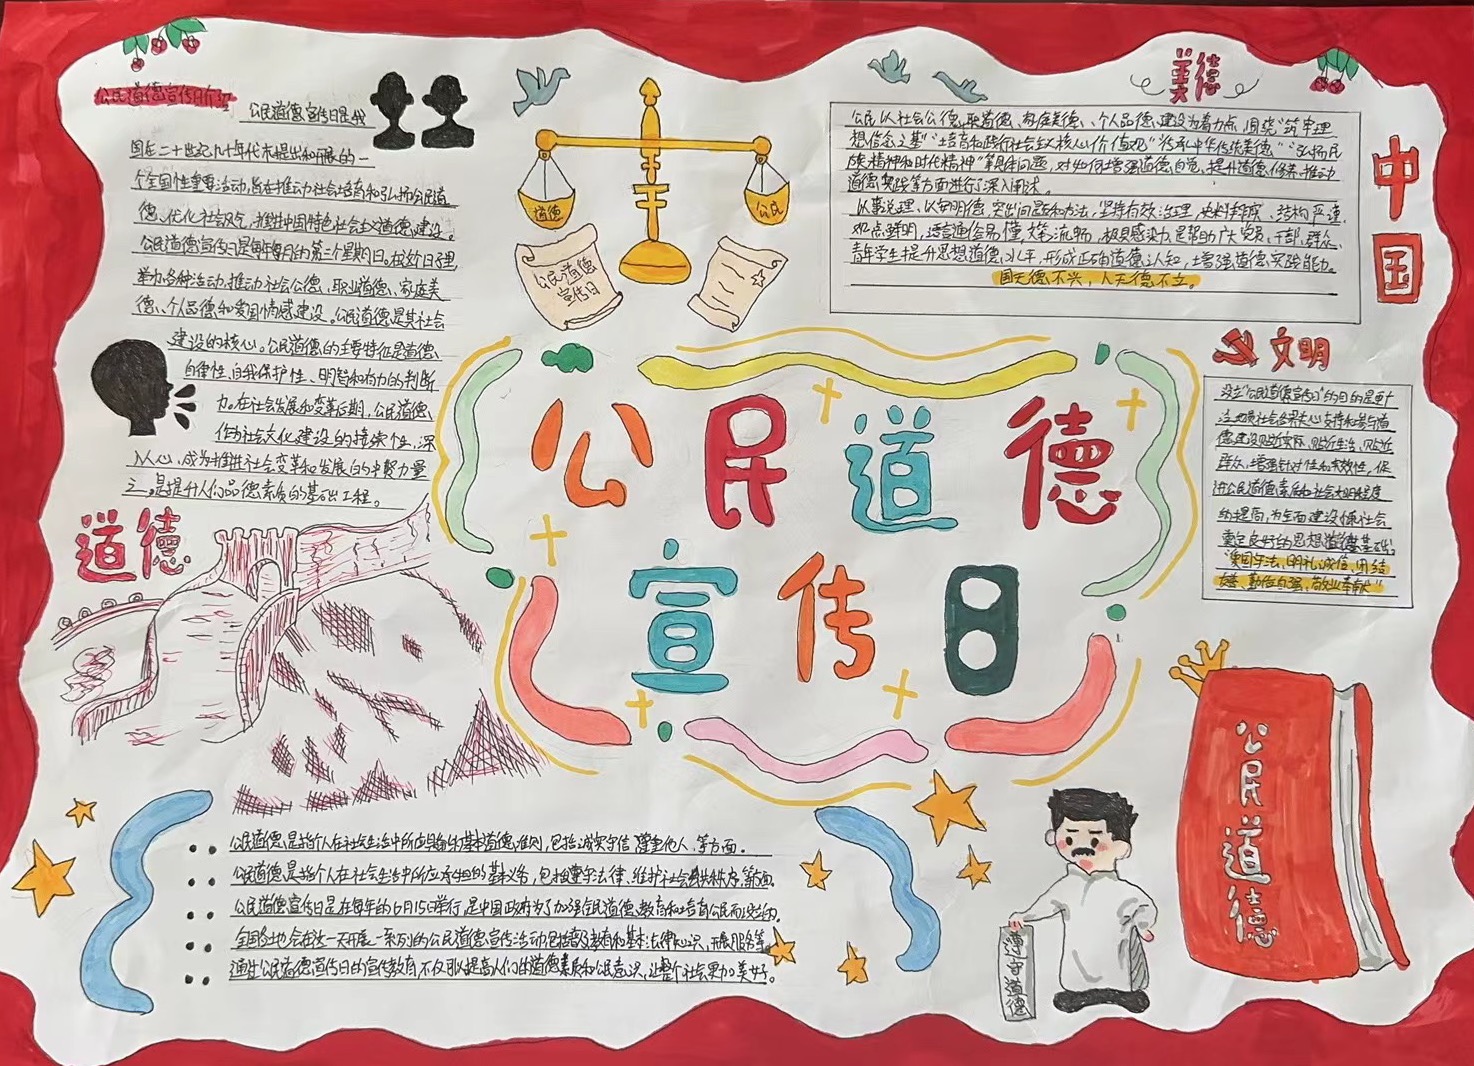 公民道德宣传日
公民道德宣传日是我
国在二十世纪九十年代末提出和开展的一
个全国性重要活动,旨在推动社会培育和弘扬公民道
德、优化社会风气,推进中国特色社会主义道德建设。
公民道德宣传日是每年每月的第二个星期日。在这个日子里,
举办各种活动,推动社会公德、职业道德、家庭美
德、个人品德和爱国情感建设。公民道德是其社会
建设的核心。公民道德的主要特征是道德、
自律性、自我保护性、明智和有力的判断
力。在社会发展和变革后期,公民道德、
作为社会文化建设的持续个位,深
入人心,成为推进社会变革和发展的中坚力量
之一。是提升人们品德素质的基础工程。
道德
公民
公民道德
宣传日
美德
公民以社会公德、职业道德、家庭美德、个人品德、建设为着力点,围绕“筑牢理
想信念之基”“培育和践行社会主义核心价值观”“传承中华传统美德”“弘扬民
族精神和时代精神”等具体问题,对如何增强道德自觉、提升道德修养、推动
道德实践等方面进行了深入阐述。
以事说理、以案明德,突出问题和方法,坚持有效治理,结构严谨、
观点鲜明,语言通俗易懂、文笔流畅,极具感染力,是帮助广大党员、干部、群众、
青年学生提升思想道德、水平,形成正确道德认知,增强道德实践能力。
国无德不兴,人无德不立。
中
国
文明
设立“公民道德宣传日”的目的是更广
泛地动员社会各界关心支持和参与道
德建设,贴近实际、贴近生活、贴近
群众、增强针对性和实效性,促
进公民道德素质和社会文明程度
的提高,为全面建设小康社会
奠定良好的思想道德基础。
“爱国守法、明礼诚信、团结
友善、勤俭自强、敬业奉献”
公民道德
宣传日
道德
公民道德是指个人在社会生活中所应具备的基本道德准则,包括诚实守信、尊重他人、等方面。
公民道德是指个人在社会生活中所应承担的基本义务,包括遵守法律、维护社会公共秩序、等方面。
公民道德宣传日是在每年的6月15日举行,是中国政府为了加强公民道德教育和培育公民而设的。
全国各地会在这一天开展一系列的公民道德宣传活动,包括普及教育和基本法律知识、开展服务等。
通过公民道德宣传日的宣传教育,不仅可以提高人们的道德素质和公民意识,让整个社会更加美好。
遵守道德
公民道德